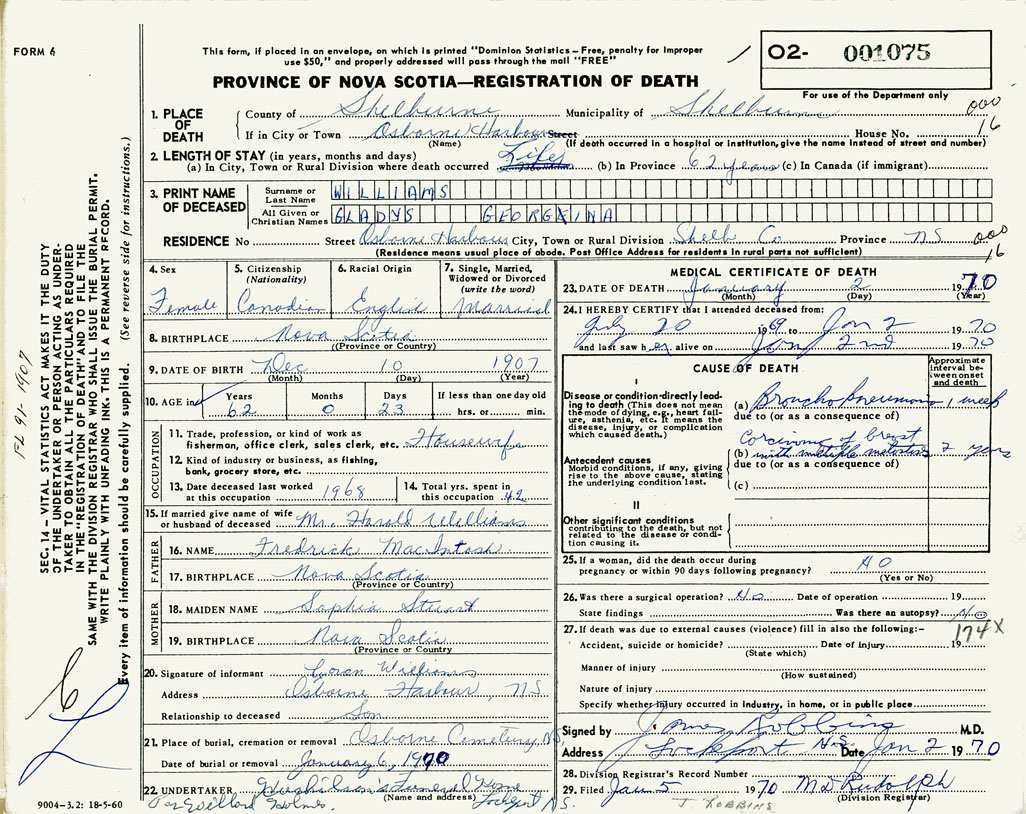 FORM 6
This form, if placed in an envelope, on which is printed "Dominion Statistics – Free, penalty for improper
use $50," and properly addressed will pass through the mail "FREE"
O2- 001075
For use of the Department only
PROVINCE OF NOVA SCOTIA—REGISTRATION OF DEATH
1. PLACE OF DEATH
County of Shelburne Municipality of Shelburne
000
16
If in City or Town Osborne Harbour Street House No.
(Name) (If death occurred in a hospital or institution, give the name instead of street and number)
2. LENGTH OF STAY (in years, months and days)
(a) In City, Town or Rural Division where death occurred Life (b) In Province 62 years (c) In Canada (if immigrant)
3. PRINT NAME OF DECEASED
Surname or Last Name WILLIAMS
All Given or Christian Names GLADYS GEORGINA
RESIDENCE No Street Osborne Harbour City, Town or Rural Division Shelb Co Province N S
000
16
(Residence means usual place of abode. Post Office Address for residents in rural parts not sufficient)
4. Sex
Female
5. Citizenship
(Nationality)
Canadian
6. Racial Origin
English
7. Single, Married,
Widowed or Divorced
(write the word)
Married
8. BIRTHPLACE Nova Scotia
(Province or Country)
9. DATE OF BIRTH Dec 10 1907
(Month) (Day) (Year)
10. AGE in
Years Months Days If less than one day old
62 0 23 hrs. or min.
OCCUPATION
11. Trade, profession or kind of work as
fisherman, office clerk, sales clerk, etc. Housewife
12. Kind of industry or business, as fishing,
bank, grocery store, etc.
13. Date deceased last worked
at this occupation 1968
14. Total yrs. spent in
this occupation 42
15. If married give name of wife
or husband of deceased Mr. Harold Williams
FATHER
16. NAME Fredrick MacIntosh
17. BIRTHPLACE Nova Scotia
(Province or Country)
MOTHER
18. MAIDEN NAME Sophia Stuart
19. BIRTHPLACE Nova Scotia
(Province or Country
20. Signature of informant Williams
Address Osborne Harbour N S
Relationship to deceased Son
21. Place of burial, cremation or removal Osborne Cemetery N S
Date of burial or removal January 6, 1970
22. UNDERTAKER Funeral Home
(Name and address) Lockeport N.S.
Per Willard Holmes.
9004–3.2: 18-5-60
MEDICAL CERTIFICATE OF DEATH
23. DATE OF DEATH January 2 1970
(Month) (Day) (Year)
24. I HEREBY CERTIFY that I attended deceased from:
July 20 1969 to Jan 2 1970
and last saw her alive on Jan 2nd 1970
CAUSE OF DEATH
Approximate
interval be-
tween onset
and death
I
Disease or condition directly lead-
ing to death (This does not mean
the mode of dying, e.g., heart fail-
ure, asthenia, etc. It means the
disease, injury, or complication
which caused death.)
(a) Broncho Pneumonia 1 week
due to (or as a consequence of)
Carcinoma of breast
(b) with multiple metastasis 2 years
due to (or as a consequence of)
Antecedent causes
Morbid conditions, if any, giving
rise to the above cause, stating
the underlying condition last.
(c)
II
Other significant conditions
contributing to the death, but not
related to the disease or condi-
tion causing it.
25. If a woman, did the death occur during
pregnancy or within 90 days following pregnancy? NO
(Yes or No)
26. Was there a surgical operation? No Date of operation 19
State findings Was there an autopsy? No
174X
27. If death was due to external causes (violence) fill in also the following:–
Accident, suicide or homicide? Date of injury 19
(State which)
Manner of injury
(How sustained)
Nature of injury
Specify whether injury occurred in industry, in home, or in public place
Signed by James Robbins M.D.
Address Lockeport N.S. Date Jan 2 1970
28. Division Registrar's Record Number
29. Filed Jan 5 1970 M D Rudolph
(Division Registrar)
J. ROBBINS
SEC. 14 – VITAL STATISTICS ACT MAKES IT THE DUTY
OF THE UNDERTAKER OR PERSON ACTING AS UNDER-
TAKER TO OBTAIN ALL THE PARTICULARS REQUIRED
IN THE "REGISTRATION OF DEATH" AND TO FILE THE
SAME WITH THE DIVISION REGISTRAR WHO SHALL ISSUE THE BURIAL PERMIT.
WRITE PLAINLY WITH UNFADING INK. THIS IS A PERMANENT RECORD.
Every item of information should be carefully supplied. (See reverse side for instructions.)